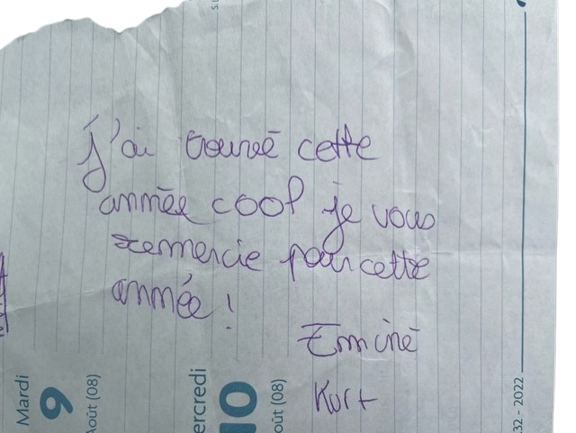 J'ai trouvé cette
année cool je vous
remercie pour cette
année !
Eminé
Kurt
Mardi
9
Août (08)
ercredi
10
oût (08)
32 - 2022